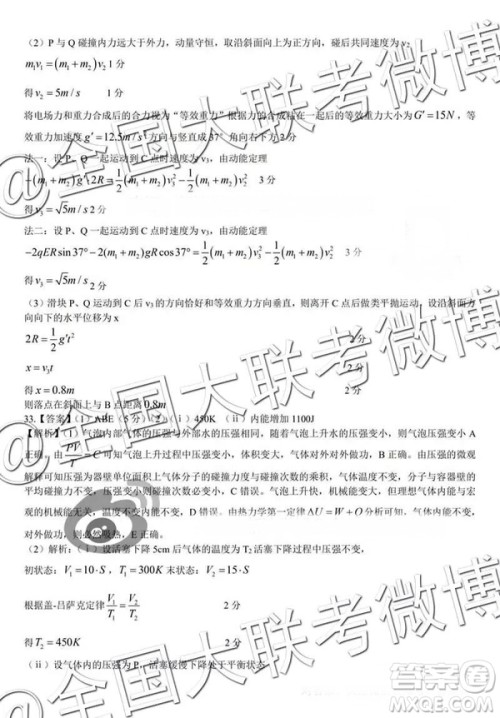 （2）P 与 Q 碰撞内力远大于外力，动量守恒，取沿斜面向上为正方向，碰后共同速度为 v₂
m₁v₁=(m₁+m₂)v₂ 1 分
得 v₂=5m/s 1 分
将电场力和重力合成后的合力视为“等效重力”根据力的合成精在一起的等效重力大小为 G′=15N，等
效重力加速度 g′=12.5m/s² 方向与竖直 37°角向右下方 2 分
法一：设 P、Q 一起运动到 C 点时速度为 v₃，由动能定理
-(m₁+m₂)g′·2R=1/2(m₁+m₂)v₃²-1/2(m₁+m₂)v₂² 3 分
得 v₃=√5m/s 2 分
法二：设 P、Q 一起运动到 C 点时速度为 v₃，由动能定理
-2qER sin37°-2(m₁+m₂)gR cos37°=1/2(m₁+m₂)v₃²-1/2(m₁+m₂)v₂² 3 分
得 v₃=√5m/s 2 分
（3）滑块 P、Q 运动到 C 后 v₃ 的方向恰好和等效重力方向垂直，则离开 C 点后做类平抛运动，设沿斜面方
向向下的水平位移为 x
2R=1/2g′t² 2 分
x=v₃t 2 分
得 x=0.8m
则落点在斜面上与 B 点距离 0.8m
33.【答案】（1）ABE（5 分）（2）（ⅰ）450K （ⅱ）内能增加 1100J
【解析】（1）气泡内部气体的压强与外部水的压强相同，随着气泡上升水的压强变小，则气泡的压强变小，
A 正确。由 PV/T=C 可知，温度不变，压强变小，体积变大，气体对外界做功，B 正确。由气体压强的微观
解释可知压强为器壁单位面积上气体分子的碰撞力度与碰撞次数的乘积，温度不变，碰撞力度与容器壁
的平均碰撞力不变，压强变小则单位面积碰撞次数必变小，C 错误。气泡上升快，机械能变大，D
机械能改变但内能不变，D 错误。由热力学第一定律 ΔU=W+Q 分析可知，气体温度不变，内能不变，
对外做功，则必然吸热，E 正确。
（2）解析：（ⅰ）设活塞下降 5cm 后气体的温度为 T₂ 活塞下降过程中压强不变，
初状态：V₁=10·S，T₁=300K 末状态：V₂=15·S
根据盖-吕萨克定律 V₁/T₁=V₂/T₂ 2 分
得 T₂=450K 2 分
（ⅱ）设气体内的压强为 P，活塞缓慢下降处于平衡状态
@全国大联考微博
@全国大联考微博
@全国大联考微博
答案圈
MXQE.COM